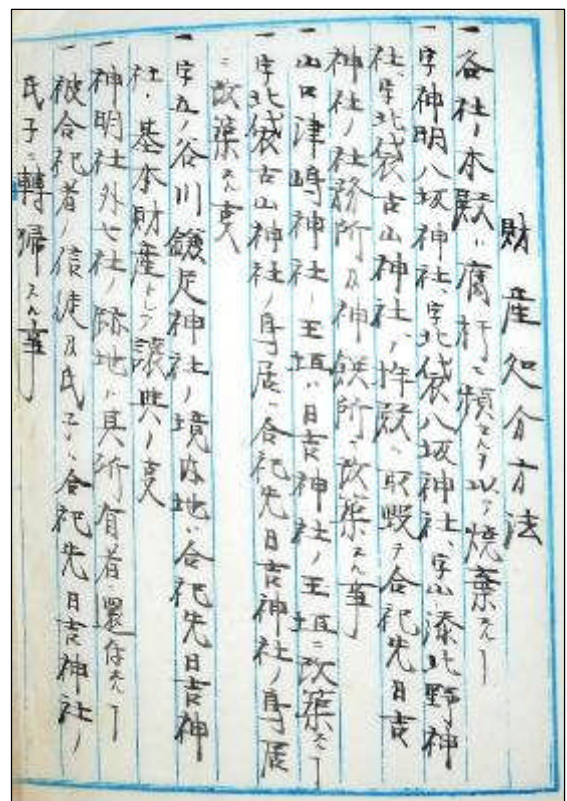 財産処分方法
一各社ノ本殿ハ腐朽ニ頻セルヲ以テ焼棄スルヿ
一字神明八坂神社、字北袋八坂神社、字山添北野神
社、字北袋古山神社ノ拝殿ハ取毀チ合祀先日吉
神社ノ社務所及神饌所ニ改築スル事
一山口津嶋神社ノ玉垣ハ日吉神社ノ玉垣ニ改築スルヿ
一字北袋古山神社ノ鳥居ハ合祀先日吉神社ノ鳥居
ニ改築スル事
一字五ノ谷川鎌足神社ノ境内地ハ合祀先日吉神
社ノ基本財産トシテ譲與ノ事
一神明社外七社ノ跡地ハ其所有者還付スルヿ
一被合祀者ノ信徒及氏子ハ合祀先日吉神社ノ
氏子ニ轉帰スル事